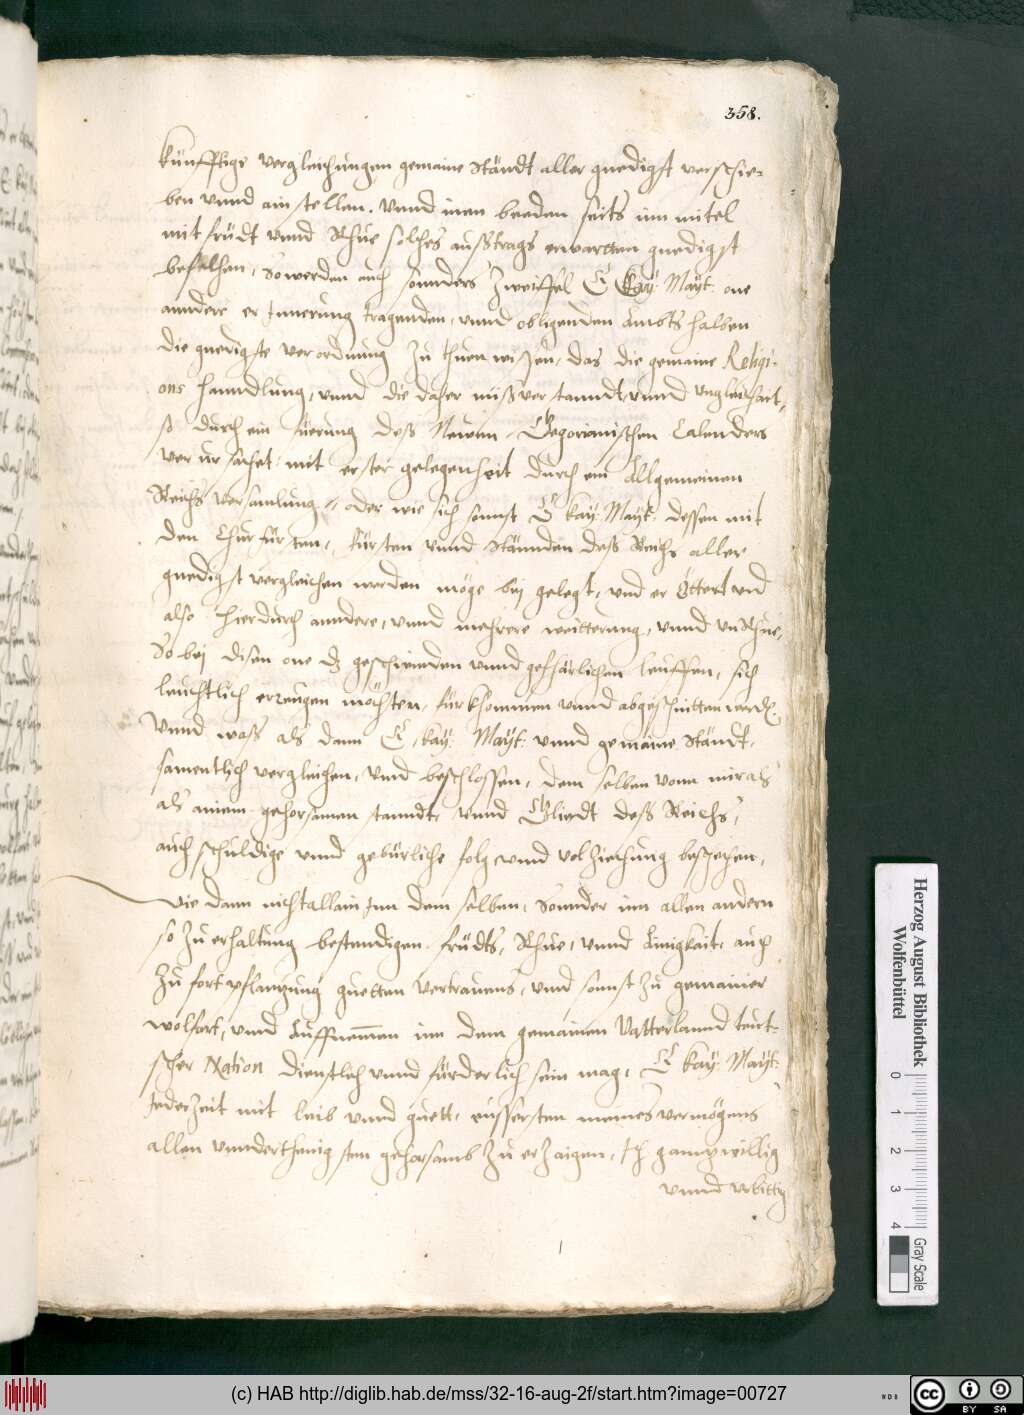 358.
künfftige vergleichungen gemaine Ständt aller gnedigst verschie-
ben vnnd einstellen. Vnnd inen beeden seits inn mitel
mit fridt vnnd Rhue solches ausstrags erwartten gnedigst
befelhen, So werden auch sonnders Zweiffel E Kay: Mayt: one
anndere erInnerung tragenden, vnnd obligenden Ambts halben
die gnedigste verordnung Zu thuen wissen, das die gemaine Religi-
ons hanndlung, vnnd die daher missverstanndt, vnnd vngleichait,
so durch ein füerung dess Newen Gregorianischen Calenders
verursachet mit erster gelegenheit durch ein Allgemeinen
Reichs versamlung, oder wie sich sonnst E kay: Mayt: dessen mit
den Churfürsten, fürsten vnnd Stännden dess Reichs aller
gnedigst vergleichen werden möge bei gelegt, vnd erörttert vnd
also hierdurch anndere, vnnd mehrere weitterung, vnnd vnRhue,
So bei disen one dz geschwinden vnnd gefhärlichen leuffen, sich
leuchtlich erzeugen möchten, fürkhommen vnnd abgeschnitten werdē.
Vnnd wass als dann E kay: Mayt: vnnd gemaine Ständt,
samentlich vergleichen, vnnd beschlossen, dem selben vonn mir als
als ainem gehorsamen standt, vnnd Gliedt dess Reichs,
auch schuldige vnnd gebürliche folg vnnd volZiehung beschehen,
Wie dann nicht allain Inn dem selben, Sonnder inn allen andern
so Zu erhaltung bestendigen fridts, Rhue, vnnd Ainigkait, auch
Zu fortpflanzung guetten vertrauens, vnnd sonnst Zu gemainer
wolfart, vnnd Auffnemen inn dem gemainen Vatterlannd teut-
scher Nation dienstlich vnnd fürderlich sein mag, E kay: Mayt:
Jeder Zeit mit leib vnnd guett, eussersten meines vermögens
allen vnnderthenigsten gehorsamb Zu erZaigen, Ich gannz willig
vnnd vrbittig
Herzog August Bibliothek
Wolfenbüttel
0 1 2 3 4
Gray Scale
(c) HAB http://diglib.hab.de/mss/32-16-aug-2f/start.htm?image=00727
WDB
cc BY SA